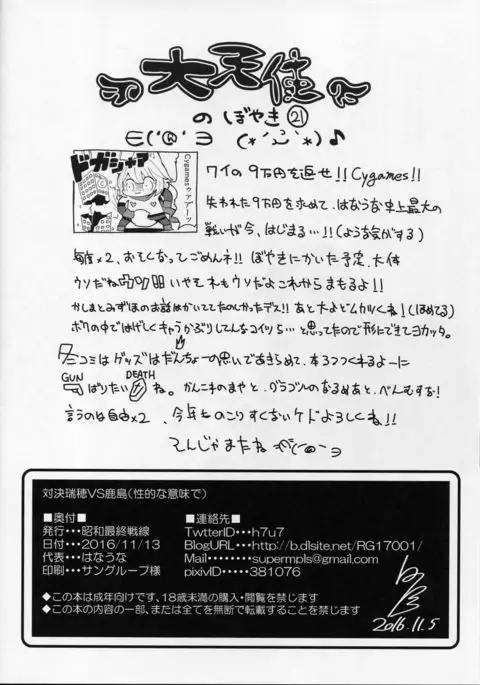 大天使
のぼやき㉑
∈(´@｀∋ (*´ω｀*)♪
ドガシャア
Cygamesゥアアーッ
ワイの9万円を返せ!!Cygames!!
失われた9万円を求めて、はなうな史上最大の
戦いが今、はじまる…!!(ような気がする)
毎度×2、おそくなってごめんネ!!ぼやきにかいた予定、大体
ウソだね いやそれもウソだよこれからまもるよ!!
かしまとみずほのお話はかいててたのしかったデス!!あと大よどムカツくね!(ほめてる)
ボクの中ではげしくキャラかぶりしてんなコイツら…と思ってたので形にできてヨカッタ。
冬コミはグッズはだんちょーの思いであきらめて、本2つつくれるよーに
GUN DEATH
ばりたい ね。かんこれのまやと、グラブルのなるめあと、べんむすな!
言うのは自由×2、今年ものこりすくないケドよろしくね!!
てんじゃまたね
対決瑞穂VS鹿島(性的な意味で)
■奥付■
発行・・・昭和最終戦線
日付・・・2016/11/13
代表・・・はなうな
印刷・・・サングループ様
■連絡先■
TwtterID・・・h7u7
BlogURL・・・http://b.dlsite.net/RG17001/
Mail・・・・・・・supermpls@gmail.com
pixivID・・・・・381076
◆この本は成年向けです、18歳未満の購入・閲覧を禁じます
◆この本の内容の一部、または全てを無断で転載することを禁じます
2016.11.5